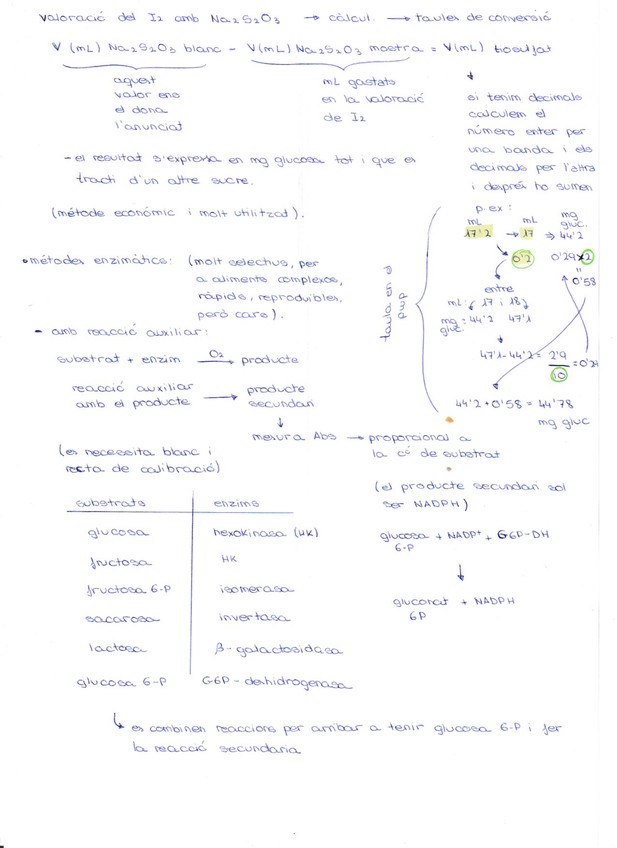 valoració del I2 amb Na2S2O3 → càlcul. → taules de conversió
V (mL) Na2S2O3 blanc - V(mL) Na2S2O3 mostra = V(mL) tiosulfat
aquest
valor ens
el dona
l'enunciat
mL gastats
en la valoració
de I2
si tenim decimals
calculem el
número enter per
una banda i els
decimals per l'altra
i després ho sumen
- el resultat s'expressa en mg glucosa tot i que es
tracti d'un altre sucre.
(mètode econòmic i molt utilitzat).
taula en el
pwp
p.ex:
mL mL mg
gluc.
17'2 → 17 ⇒ 44'2
0'2 0'29x2
"
0'58
entre
mL: 17 i 18
mg = 44'2 47'1
gluc.
47'1 - 44'2 = 2'9 = 0'29
10
44'2 + 0'58 = 44'78
mg gluc
• mètodes enzimàtics: (molt selectius, per
a aliments complexos,
ràpids, reproduïbles,
però cars).
- amb reacció auxiliar:
substrat + enzim O2 → producte
reacció auxiliar → producte
amb el producte secundari
↓
mesura Abs → proporcional a
la có de substrat
(es necessita blanc i
recta de calibració)
(el producte secundari sol
ser NADPH)
substrats enzims
glucosa hexokinasa (HK)
fructosa HK
fructosa 6-P isomerasa
sacarosa invertasa
lactosa β-galactosidasa
glucosa 6-P G6P-deshidrogenasa
glucosa + NADP+ + G6P-DH
6-P
↓
gluconat + NADPH
6P
↳ es combinen reaccions per arribar a tenir glucosa 6-P i fer
la reacció secundaria